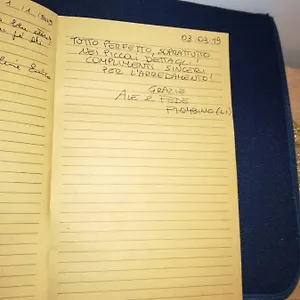 03.03.19
TUTTO PERFETTO, SOPRATTUTTO
NEI PICCOLI DETTAGLI!
COMPLIMENTI SINCERI
PER L'ARREDAMENTO!
GRAZIE
ALE E FEDE
PIOMBINO (LI)